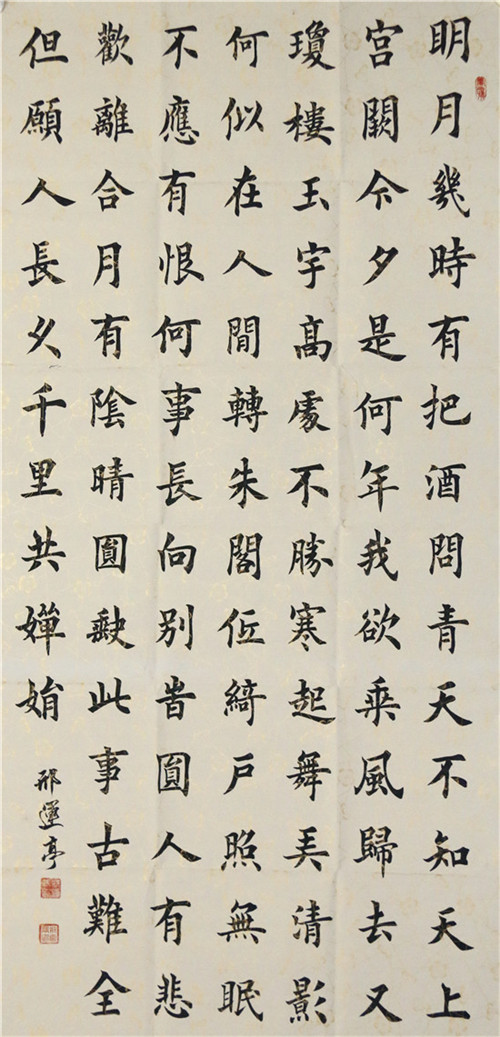 明月幾時有把酒問青天不知天上
宮闕今夕是何年我欲乘風歸去又
瓊樓玉宇高處不勝寒起舞弄清影
何似在人間轉朱閣低綺戶照無眠
不應有恨何事長向別旹圓人有悲
歡離合月有陰晴圓缺此事古難全
但願人長久千里共嬋娟
邢運亭